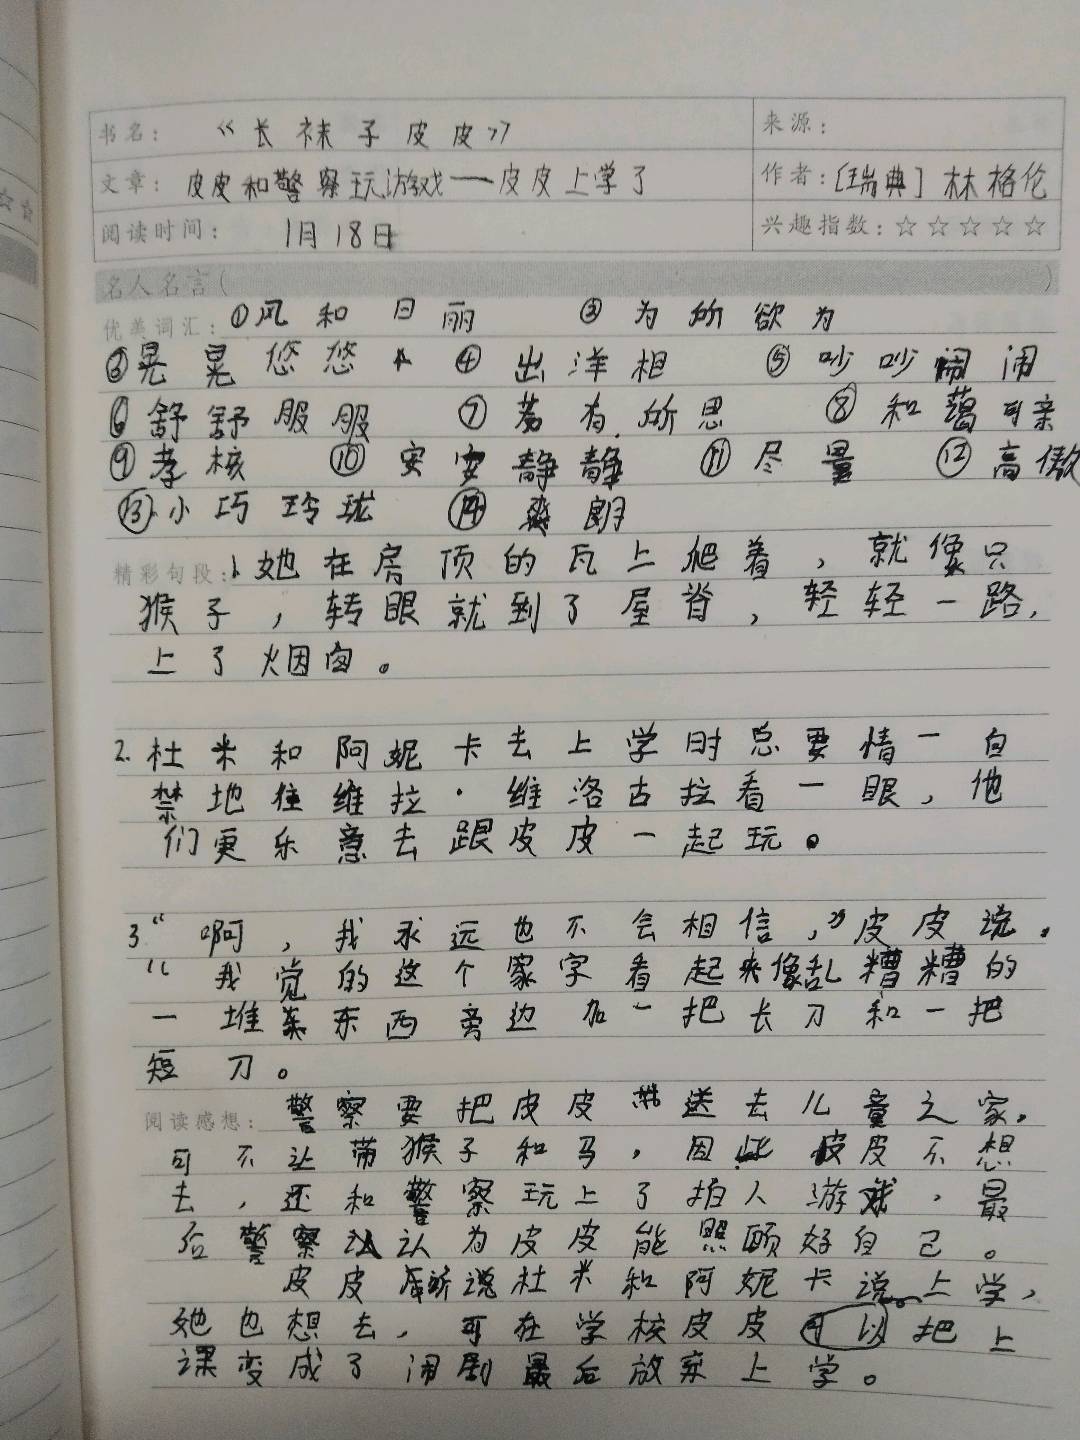 书名：《长袜子皮皮》 来源：
文章：皮皮和警察玩游戏——皮皮上学了 作者：[瑞典]林格伦
阅读时间：1月18日 兴趣指数：☆☆☆☆☆
名人名言（ ）
优美词汇：①风和日丽 ③为所欲为
②晃晃悠悠 ④出洋相 ⑤吵吵闹闹
⑥舒舒服服 ⑦若有所思 ⑧和蔼可亲
⑨考核 ⑩安安静静 ⑪尽量 ⑫高傲
⑬小巧玲珑 ⑭爽朗
精彩句段：1.她在房顶的瓦上爬着，就像只
猴子，转眼就到了屋脊，轻轻一路，
上了烟囱。
2.杜米和阿妮卡去上学时总要情一自
禁地往维拉·维洛古拉看一眼，他
们更乐意去跟皮皮一起玩。
3“啊，我永远也不会相信，”皮皮说。
“我觉的这个家字看起来像乱糟糟的
一堆东西旁边加一把长刀和一把
短刀。
阅读感想：警察要把皮皮送去儿童之家。
可不让带猴子和马，因此皮皮不想
去，还和警察玩上了拍人游戏，最
后警察认为皮皮能照顾好自己。
皮皮听说杜米和阿妮卡说上学，
她也想去，可在学校皮皮可以把上
课变成了闹剧最后放弃上学。